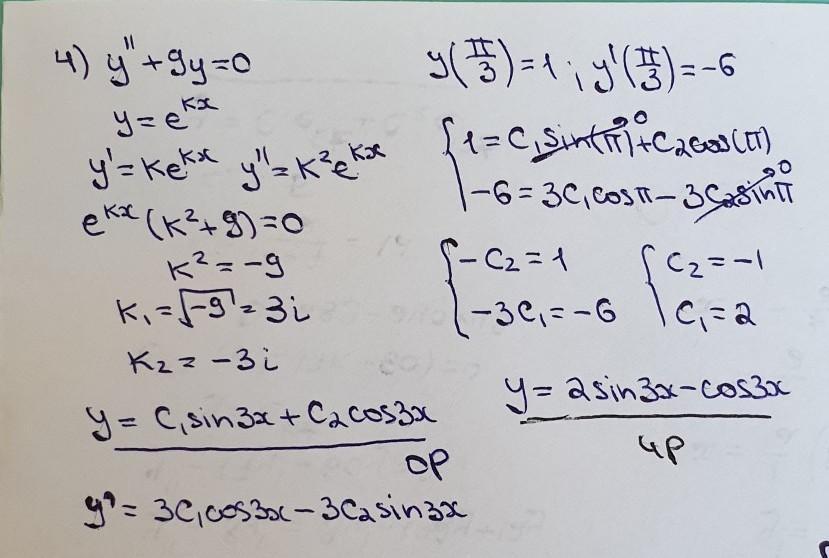 4) y''+9y=0
y=e^{kx}
y'=ke^{kx} y''=k²e^{kx}
e^{kx}(k²+9)=0
k²=-9
k₁=√-9=3i
k₂=-3i
y=C₁sin3x+C₂cos3x
OP
y'=3C₁cos3x-3C₂sin3x
y(π/3)=1; y'(π/3)=-6
{1=C₁sin(π)→0+C₂cos(π)
-6=3C₁cosπ-3C₂sinπ→0
{-C₂=1 {C₂=-1
-3C₁=-6 C₁=2
y=2sin3x-cos3x
ЧР